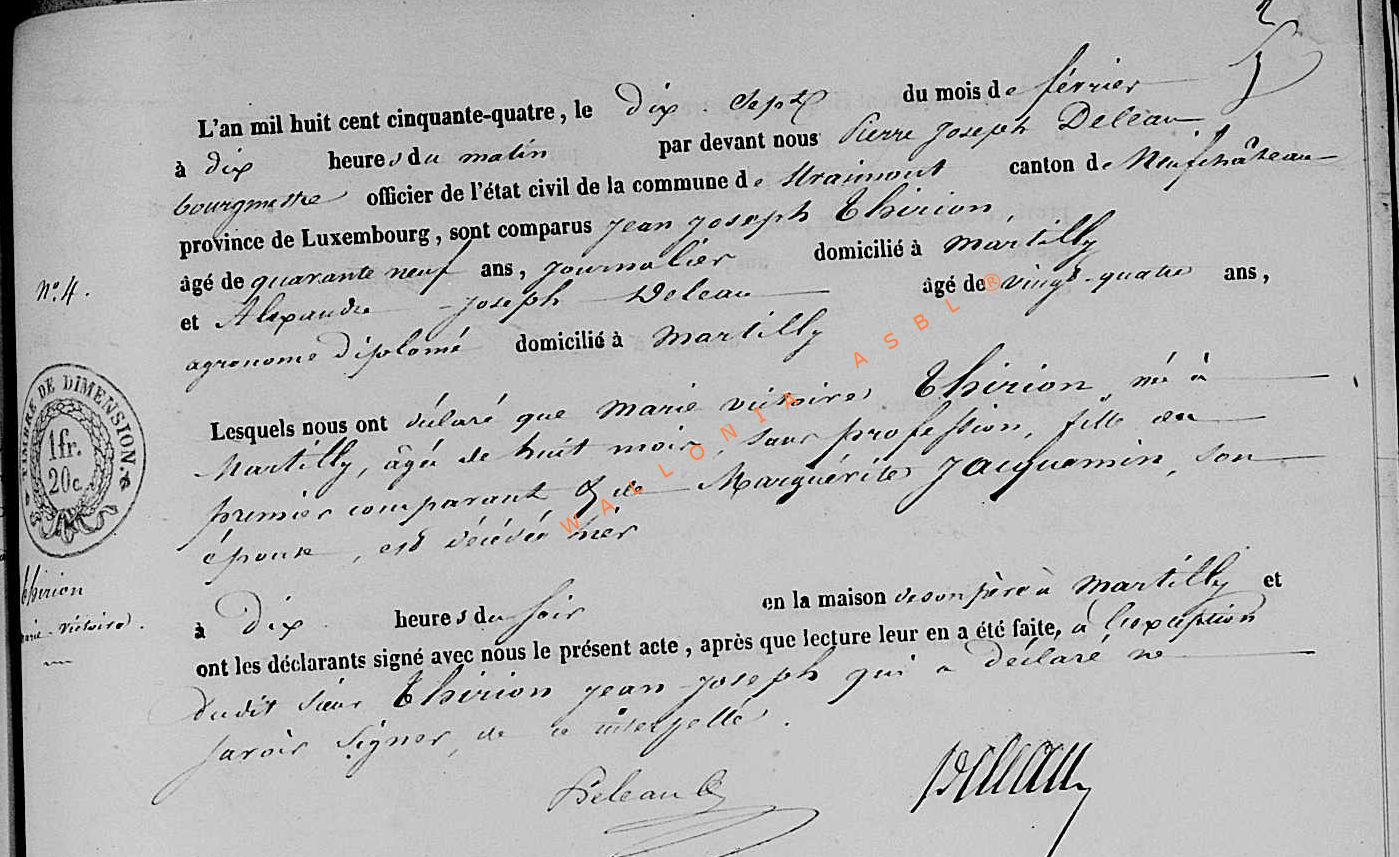 L'an mil huit cent cinquante-quatre, le dix Sept du mois de février
à dix heures du matin par devant nous Pierre Joseph Deleau
bourgmestre officier de l'état civil de la commune de Straimont canton de Neufchâteau
province de Luxembourg, sont comparus Jean Joseph Thirion,
N° 4.
âgé de quarante neuf ans, journalier domicilié à Martilly
et Alexandre Joseph Deleau âgé de vingt-quatre ans,
agronome diplomé domicilié à Martilly
TIMBRE DE DIMENSION.
1fr.
20c.
Lesquels nous ont déclaré que Marie victoire Thirion, née à
Martilly, âgée de huit mois, sans profession, fille du
premier comparant & de Marguérite Jacquemin, son
épouse, est décédée hier
Thirion
Marie-Victoire.
à Dix heures du soir en la maison de son père à Martilly et
ont les déclarants signé avec nous le présent acte, après que lecture leur en a été faite, à l'exception
dudit Sieur Thirion Jean Joseph qui a déclaré ne
savoir signer, de ce interpellé.
Deleau Deleau
WALLONIA ASBL ®